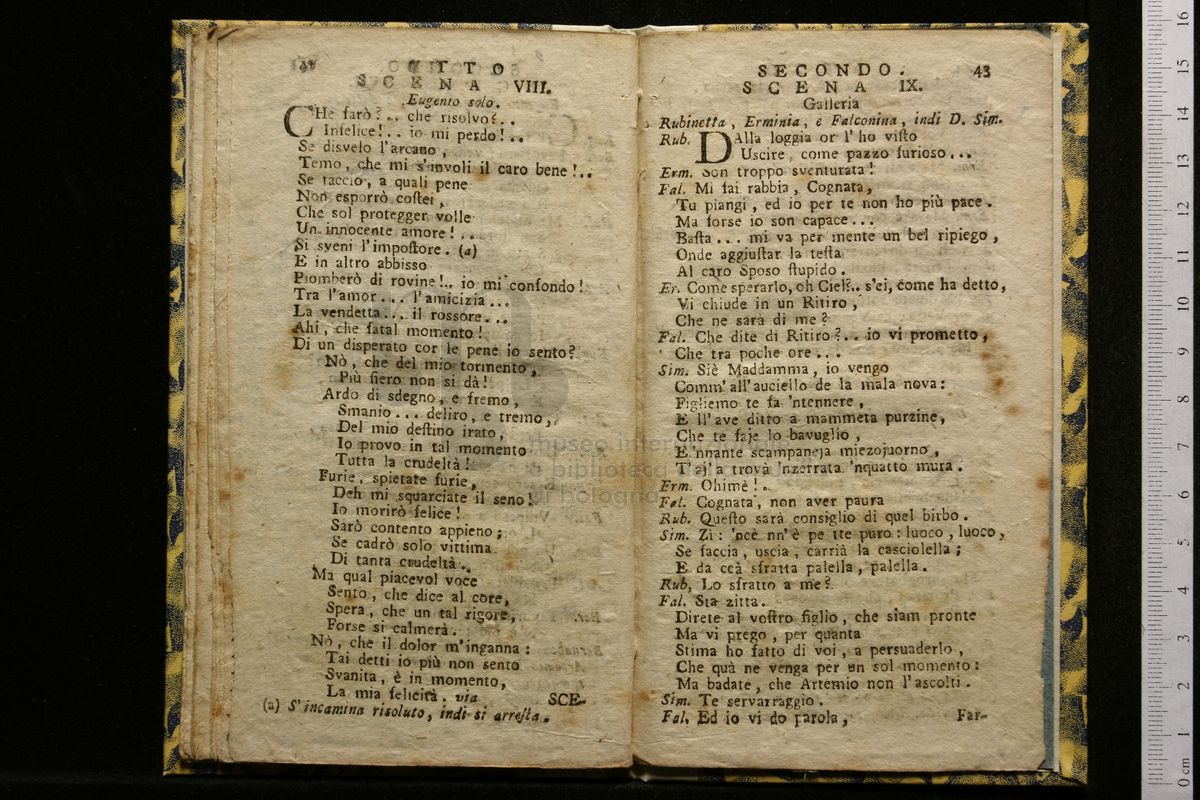 ATTO
SCENA VIII.
Eugenio solo.
CHe farò?.. che risolvo?..
Infelice!.. io mi perdo!..
Se disvelo l'arcano,
Temo, che mi s'involi il caro bene!..
Se taccio, a quali pene
Non esporrò coſtei,
Che sol protegger volle
Un innocente amore!...
Si sveni l'impoſtore. (a)
E in altro abbisso
Piomberò di rovine!.. io mi confondo!
Tra l'amor... l'amicizia...
La vendetta... il rossore...
Ahi, che fatal momento!
Di un disperato cor le pene io sento?
Nò, che del mio tormento,
Più fiero non si dà!
Ardo di sdegno, e fremo,
Smanio... deliro, e tremo,
Del mio deſtino irato,
Io provo in tal momento
Tutta la crudeltà!
Furie, spietate furie,
Deh mi squarciate il seno!
Io morirò felice!
Sarò contento appieno;
Se cadrò solo vittima
Di tanta crudeltà..
Ma qual piacevol voce
Sento, che dice al core,
Spera, che un tal rigore,
Forse si calmerà.
Nò, che il dolor m'inganna:
Tai detti io più non sento
Svanita, è in momento,
La mia felicità. via
SCE-
(a) S'incamina risoluto, indi si arreſta.
SECONDO. 43
SCENA IX.
Galleria
Rubinetta, Erminia, e Falconina, indi D. Sim.
Rub. DAlla loggia or l'ho viſto
Uscire, come pazzo furioso...
Erm. Son troppo sventurata!
Fal. Mi fai rabbia, Cognata,
Tu piangi, ed io per te non ho più pace.
Ma forse io son capace...
Baſta... mi va per mente un bel ripiego,
Onde aggiuſtar la teſta
Al caro Sposo ſtupido.
Er. Come sperarlo, oh Ciel?.. s'ei, come ha detto,
Vi chiude in un Ritiro,
Che ne sarà di me?
Fal. Che dite di Ritiro?.. io vi prometto,
Che tra poche ore...
Sim. Siè Maddamma, io vengo
Comm' all'auciello de la mala nova:
Figliemo te fa 'ntennere,
E ll'ave ditto a mammeta purzine,
Che te faje lo bavuglio,
E 'nnante scampaneja miezojuorno,
T'aj' a trovà 'nzerrata 'nquatto mura.
Erm. Ohimè!.
Fal. Cognata, non aver paura
Rub. Queſto sarà consiglio di quel birbo.
Sim. Zì: 'ncè nn'è pe tte puro: luoco, luoco,
Se faccia, uscia, carrià la casciolella;
E da ccà sfratta palella, palella.
Rub, Lo sfratto a me?
Fal. Sta zitta.
Direte al voſtro figlio, che siam pronte
Ma vi prego, per quanta
Stima ho fatto di voi, a persuaderlo,
Che quà ne venga per un sol momento:
Ma badate, che Artemio non l'ascolti.
Sim. Te servarraggio.
Fal. Ed io vi do parola,
Far-
museo internazionale
e biblioteca della musica
di bologna